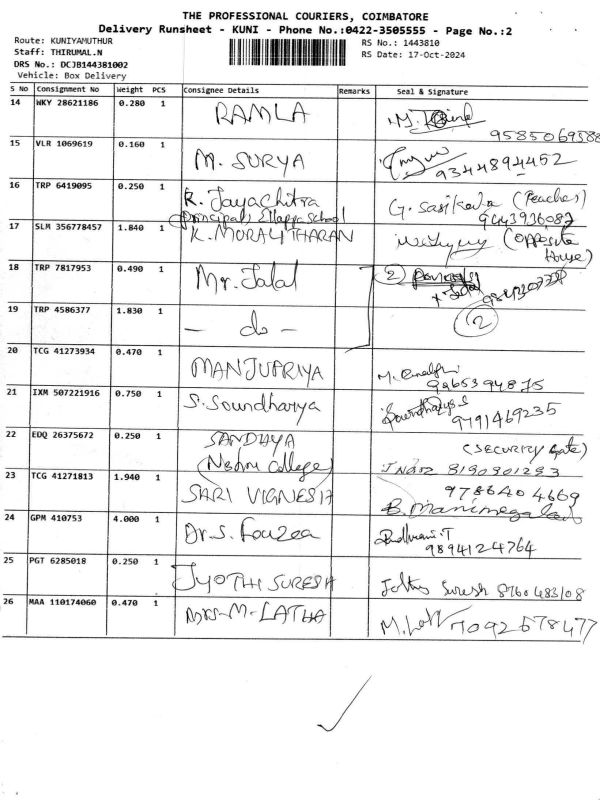 THE PROFESSIONAL COURIERS, COIMBATORE
Delivery Runsheet - KUNI - Phone No.:0422-3505555 - Page No.:2
Route: KUNIYAMUTHUR RS No.: 1443810
Staff: THIRUMAL.N RS Date: 17-Oct-2024
DRS No.: DCJB144381002
Vehicle: Box Delivery
S No Consignment No Weight PCS Consignee Details Remarks Seal & Signature
14 WKY 28621186 0.280 1 RAMLA
9585069588
15 VLR 1069619 0.160 1 M. SURYA
9344894452
16 TRP 6419095 0.250 1 R. Jayachitra G. Sasikala (Teacher)
Principal, Ellappa School
17 SLM 356778457 1.840 1 K. MORALITHARAN (Opposite
House)
18 TRP 7817953 0.490 1 Mr. Jalal 2
19 TRP 4586377 1.830 1 - do - 2
20 TCG 41273934 0.470 1 MANJUPRIYA
9965394875
21 IXM 507221916 0.750 1 S. Soundharya Soundharya.S
9791469235
22 EDQ 26375672 0.250 1 SANDHYA (SECURITY Gate)
(Nehru College) 8190901293
23 TCG 41271813 1.940 1 SARI VIGNESH 9786404669
B. Manimegalai
24 GPM 410753 4.000 1 Dr. S. Fouzea
9894124764
25 PGT 6285018 0.250 1 JYOTHI SURESH Jothi Suresh 8760483108
26 MAA 110174060 0.470 1 MRS-M-LATHA M. Latha 7092578477